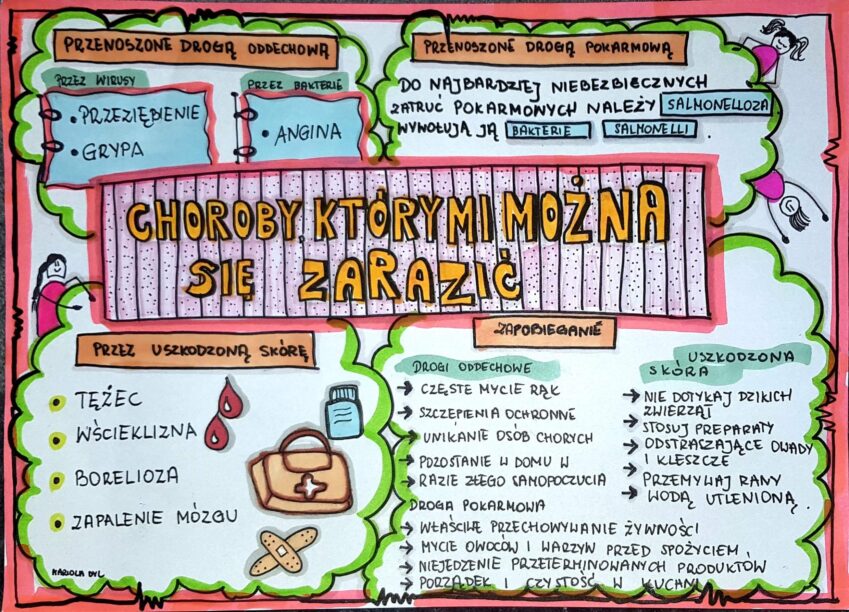 PRZENOSZONE DROGĄ ODDECHOWĄ
PRZEZ WIRUSY
• PRZEZIĘBIENIE
• GRYPA
PRZEZ BAKTERIE
• ANGINA
PRZENOSZONE DROGĄ POKARMOWĄ
DO NAJBARDZIEJ NIEBEZBIECZNYCH
ZATRUĆ POKARMOWYCH NALEŻY SALMONELLOZA
WYWOŁUJĄ JĄ BAKTERIE SALMONELLI.
CHOROBY, KTÓRYMI MOŻNA
SIĘ ZARAZIĆ
PRZEZ USZKODZONĄ SKÓRĘ
TĘŻEC
WŚCIEKLIZNA
BORELIOZA
ZAPALENIE MÓZGU
KARIOLA DYL
ZAPOBIEGANIE
DROGI ODDECHOWE
→ CZĘSTE MYCIE RĄK
→ SZCZEPIENIA OCHRONNE
→ UNIKANIE OSÓB CHORYCH
→ POZOSTANIE W DOMU W
→ RAZIE ZŁEGO SAMOPOCZUCIA
DROGA POKARMOWA
→ WŁAŚCIWE PRZECHOWYWANIE ŻYWNOŚCI
→ MYCIE OWOCÓW I WARZYW PRZED SPOŻYCIEM
→ NIEJEDZENIE PRZETERMINOWANYCH PRODUKTÓW
→ PORZĄDEK I CZYSTOŚĆ W KUCHNI
USZKODZONA
SKÓRA
→ NIE DOTYKAJ DZIKICH
ZWIERZĄT
→ STOSUJ PREPARATY
→ ODSTRASZAJĄCE OWADY
→ I KLESZCZE
→ PRZEMYWAJ RANY
→ WODĄ UTLENIONĄ.